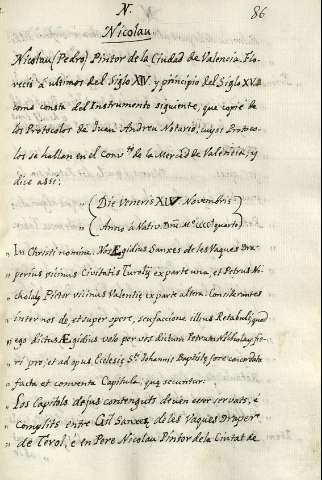 86
N.
Nicolau
Nicolau (Pedro) Pintor de la Ciudad de Valencia. Flo-
reciò à ultimos del Siglo XIV. y principio del Siglo XV.
como consta del Instrumento siguiente, que copiè de
los Protocolos de Juan Andreu Notario, cuyos Protoco-
los se hallan en el Convto. de la Merced de Valencia, y
dice assi:
(Die Veneris XIV Novembris
Anno à Nativ. Dñi Mº CCCCº quarto)
In Christi nomine. Nos Ægidius Sanxes de les Vaques Dra-
" perius vicinus Civitatis Turolij ex parte una, et Petrus Ni-
" cholay Pictor vicinus Valentie ex parte altera. Considerantes
" inter nos de, et super opere, seu factione illius Retabuli, quod
" ego dictus Ægidius volo per vos dictum Petrum Nicholay fie-
" ri pro, et ad opus Eclesie Sti. Johannis Baptiste fore concordata
" facta et conventa Capitula, que secuntur:
" Los Capitols dejus contenguts deuen esser servats, è
" complits entre Gil Sanxez de les Vaques Draper
" de Terol, è en Pere Nicolau Pintor de la Ciutat de